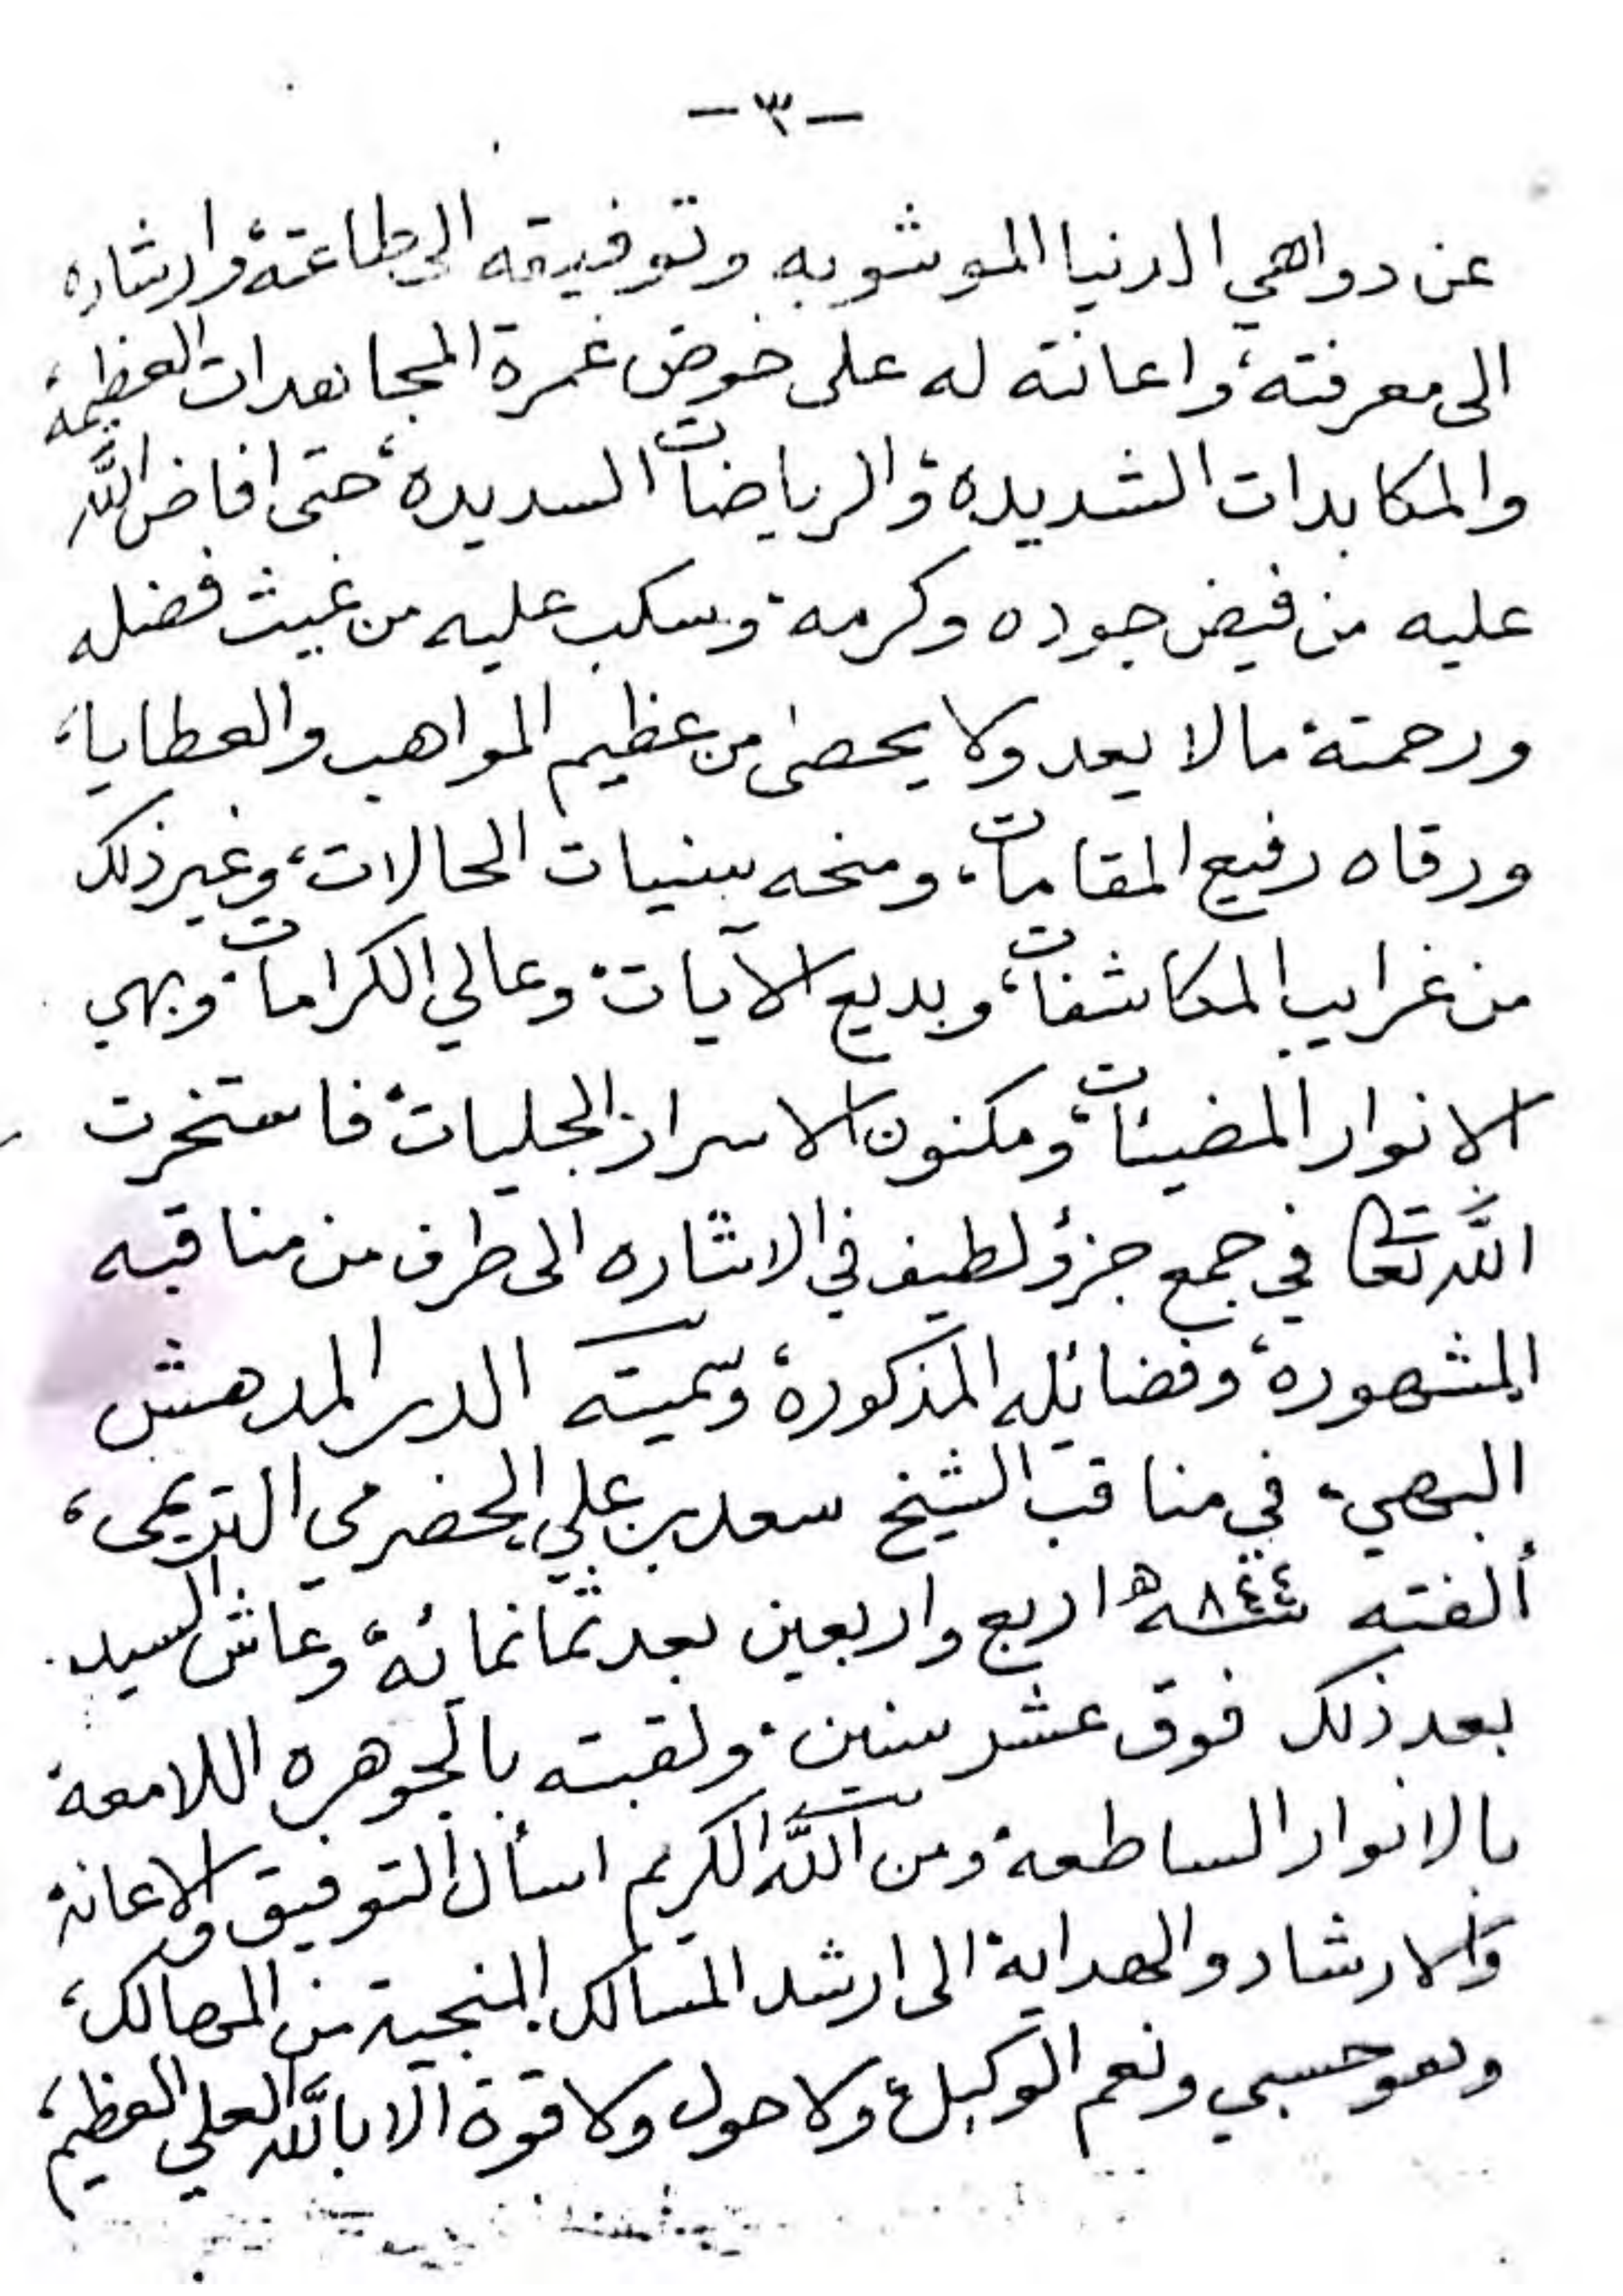 -٣-
عن دواهي الدنيا الموشوبه وتوفيقه الى طاعته، وارشاده
الى معرفته، واعانته له على خوض غمرة المجاهدات العظيمة،
والمكابدات الشديده، والرياضات السديده، حتى افاض الله
عليه من فيض جوده وكرمه. وسكب عليه من غيث فضله
ورحمته ما لا يعد ولا يحصى من عظيم المواهب والعطايا،
ورقاه رفيع المقامات، ومنحه سنيات الحالات، وغير ذلك
من غرايب المكاشفات، وبديع الآيات. وعالي الكرامات. وبهي
الانوار المضيئات، ومكنون الاسرار الجليات، فاستخرت
الله تعا في جمع جزؤ لطيف في الاشاره الى طرف من مناقبه
المشهوره، وفضائله المذكورة، وسميته الدر المدهش
البهي، في مناقب الشيخ سعد بن علي الحضرمي التريمي،
ألفته سنة ٨٤٤ه اربع واربعين بعد ثمانمائة، وعاش السيد
بعد ذلك فوق عشر سنين. ولقبته بالجوهره اللامعة
بالانوار الساطعة ومن الله الكريم اسأل التوفيق والاعانة
والارشاد والهداية الى ارشد المسالك المنجية من المهالك،
وهو حسبي ونعم الوكيل، ولا حول ولا قوة الا بالله العلي العظيم،